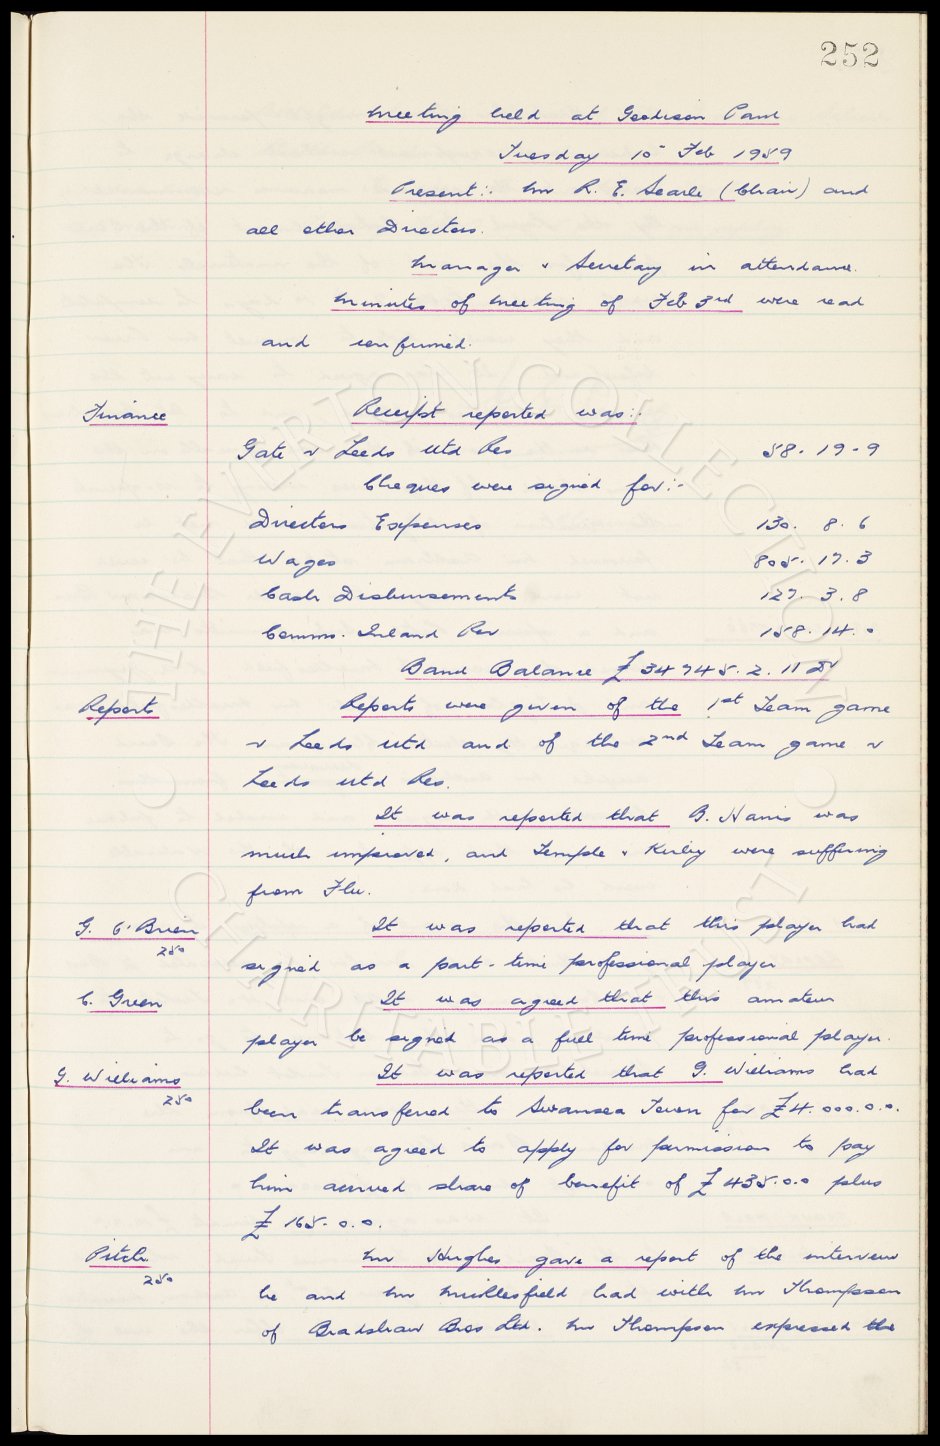 252
Meeting held at Goodison Park
Tuesday 10th Feb 1959
Present:- Mr R. E. Searle (Chair) and
all other Directors.
Manager & Secretary in attendance.
Minutes of Meeting of Feb 3rd were read
and confirmed.
Finance Receipt reported was:-
Gate v Leeds Utd Res 58. 19. 9
Cheques were signed for:-
Directors Expenses 130. 8. 6
Wages 805. 17. 3
Cash Disbursements 127. 3. 8
Comms. Inland Rev 158. 14. 0
Bank Balance £34745. 2. 11 Dr
Reports Reports were given of the 1st Team game
v Leeds Utd and of the 2nd Team game v
Leeds Utd Res.
It was reported that B. Harris was
much improved, and Temple & Kirby were suffering
from Flu.
G. O'Brien It was reported that this player had
250
signed as a part-time professional player
C. Green It was agreed that this amateur
player be signed as a full time professional player.
G. Williams It was reported that G. Williams had
250
been transferred to Swansea Town for £4.000.0.0.
It was agreed to apply for permission to pay
him accrued share of benefit of £435.0.0 plus
£165.0.0.
Pitch Mr Hughes gave a report of the interview
250
he and Mr Micklesfield had with Mr Thompson
of Bradshaw Bros Ltd. Mr Thompson expressed the
THE EVERTON COLLECTION
CHARITABLE TRUST